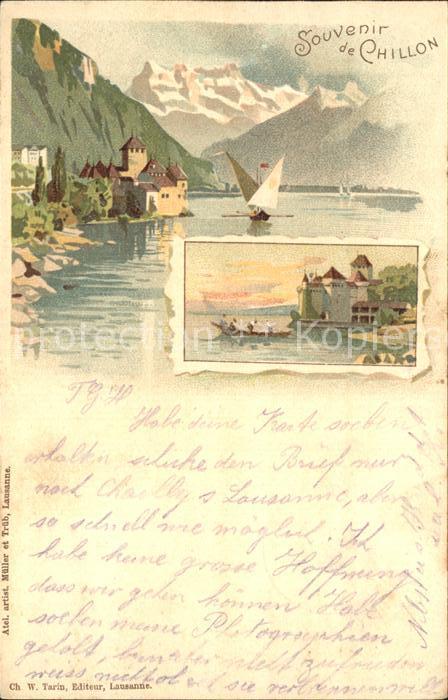 Souvenir
de CHILLON
Habe deine Karte soeben
erhalten schicke den Brief nur
nach Chailly s Lausanne, aber
so schnell wie möglich. Ich
habe keine grosse Hoffnung
dass wir gehen können. Habe
soeben meine Photographien
geholt, bin aber nicht zufrieden
weiss nicht ob sie
Atel. artist. Müller et Trüb, Lausanne.
Ch. W. Tarin, Editeur, Lausanne.